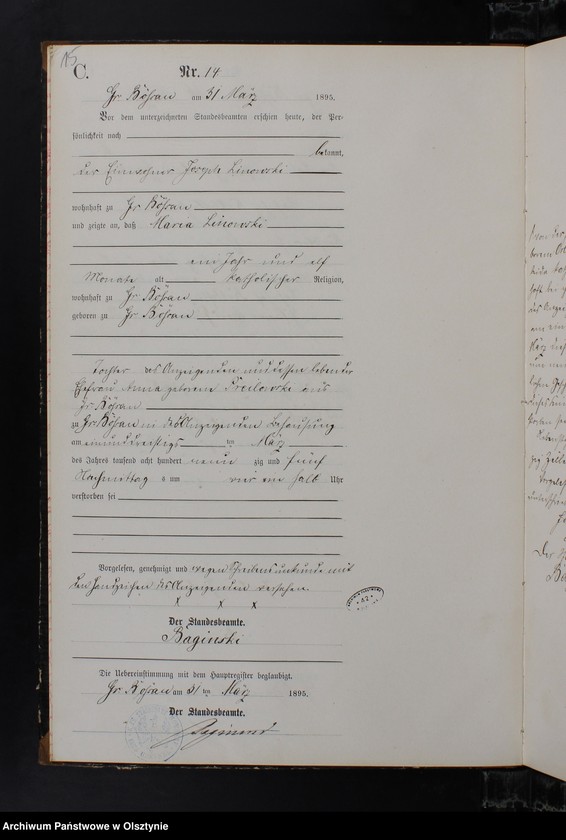 15
C.
Nr. 14
Gr Bößau am 31 März 1895.
Vor dem unterzeichneten Standesbeamten erschien heute, der Per-
sönlichkeit nach
bekannt,
der Einwohner Joseph Linowski
wohnhaft zu Gr Bößau
und zeigte an, daß Maria Linowski
ein Jahr und elf
Monate alt katholischer Religion,
wohnhaft zu Gr Bößau
geboren zu Gr Bößau
Tochter des Anzeigenden und dessen lebender
Ehefrau Anna geborene aus
Gr Bößau
zu Gr Bößau in des Anzeigenden Behausung
am einunddreißigs ten März
des Jahres tausend acht hundert neun zig und fünf
Nachmittag s um vier ein halb Uhr
verstorben sei
Vorgelesen, genehmigt und wegen Schreibensunkunde mit
den Handzeichen des Anzeigenden versehen.
x x x
Der Standesbeamte.
Baginski
Die Uebereinstimmung mit dem Hauptregister beglaubigt.
Gr Bößau am 31 ten März 1895.
Der Standesbeamte.
Archiwum Państwowe w Olsztynie